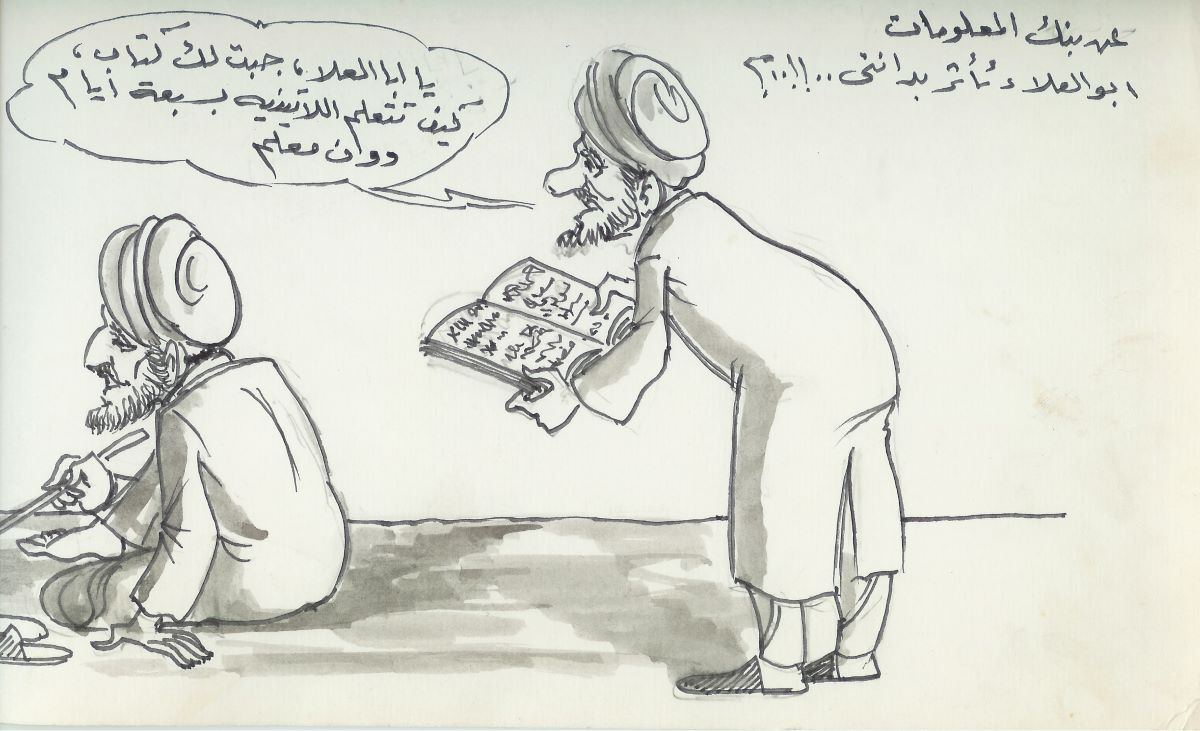 عن بنك المعلومات
ابو العلاء تأثر بدانتي..!!..؟
يا ابا العلاء، جبت لك كتاب،
كيف تتعلم اللاتينيه بسبعة أيام
دون معلم